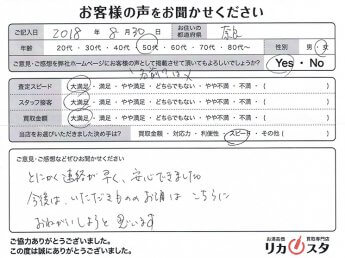 お客様の声をお聞かせください
ご記入日 2018年 8月 30日 お住いの都道府県 奈良
年齢 20代・30代・40代・50代・60代・70代・80代〜 性別 男・女
ご意見・ご感想を弊社ホームページにお客様の声として掲載させて頂いてもよろしいでしょうか? Yes・No
お名前は×
査定スピード 大満足・満足・やや満足・どちらでもない・やや不満・不満・( )
スタッフ接客 大満足・満足・やや満足・どちらでもない・やや不満・不満・( )
買取金額 大満足・満足・やや満足・どちらでもない・やや不満・不満・( )
当店をお選びいただきました決め手は? 買取金額・対応力・利便性・スピード・その他( )
ご意見・ご感想などぜひお聞かせください。
とにかく連絡が早く、安心できました。
今後は、いただきもののお酒は こちらに
おねがいしようと思います
ご協力ありがとうございました。
この度は誠にありがとうございました。
お酒高価 買取専門店
リカスタ